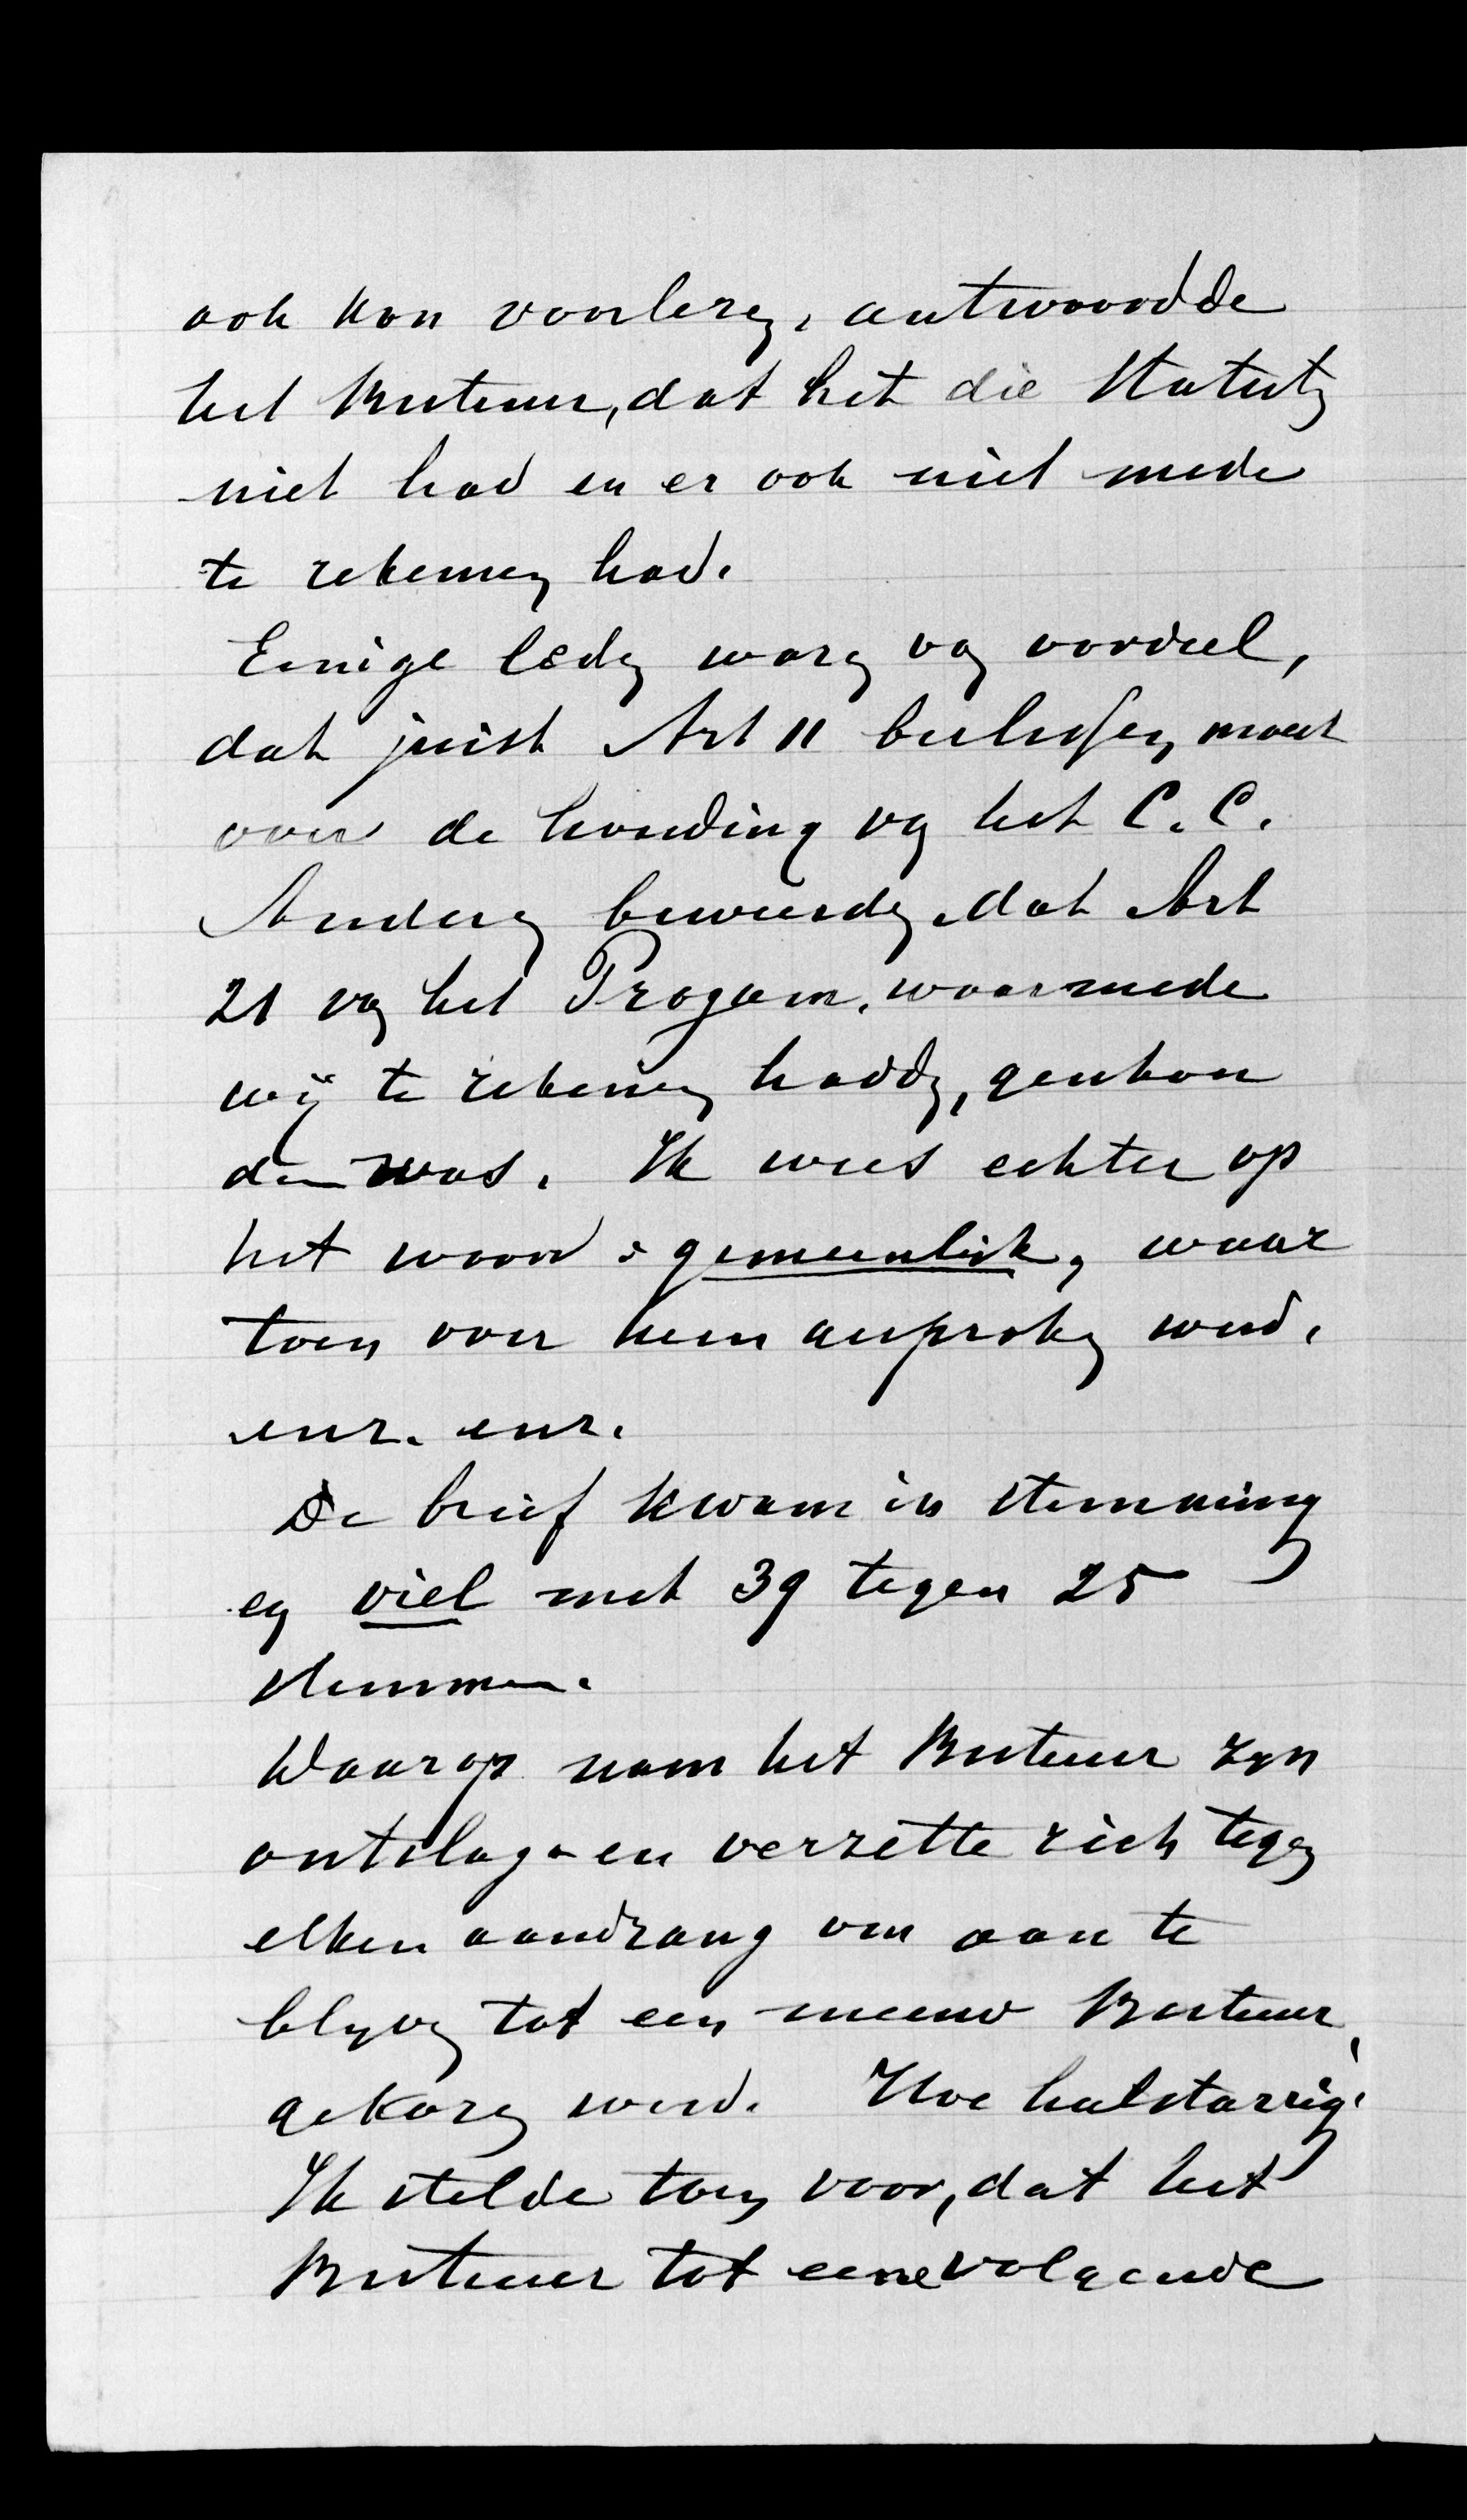 ook kon voorlezen, antwoordde
het Bestuur, dat het die Statuten
niet had en er ook niet mede
te rekenen had.
Eenige leden waren van oordeel,
dat juist Art 11 beslissen moest
over de houding van het C.C.
Anderen beweerden, dat Art
21 van het Progam, waarmede
wij te rekenen hadden, geschon
den was. Ik wees echter op
het woord: gemeenlijk, waar
toen over heen gesproken werd.
enz. enz.
De brief kwam in stemming
en viel met 39 tegen 25
stemmen.
Waarop nam het Bestuur zyn
ontslag en verzette zich tegen
elken aandrang om aan te
blyven tot een nieuw Bestuur
gekozen werd. Hoe halstarrig!
Ik stelde toen voor, dat het
Bestuur tot eene volgende